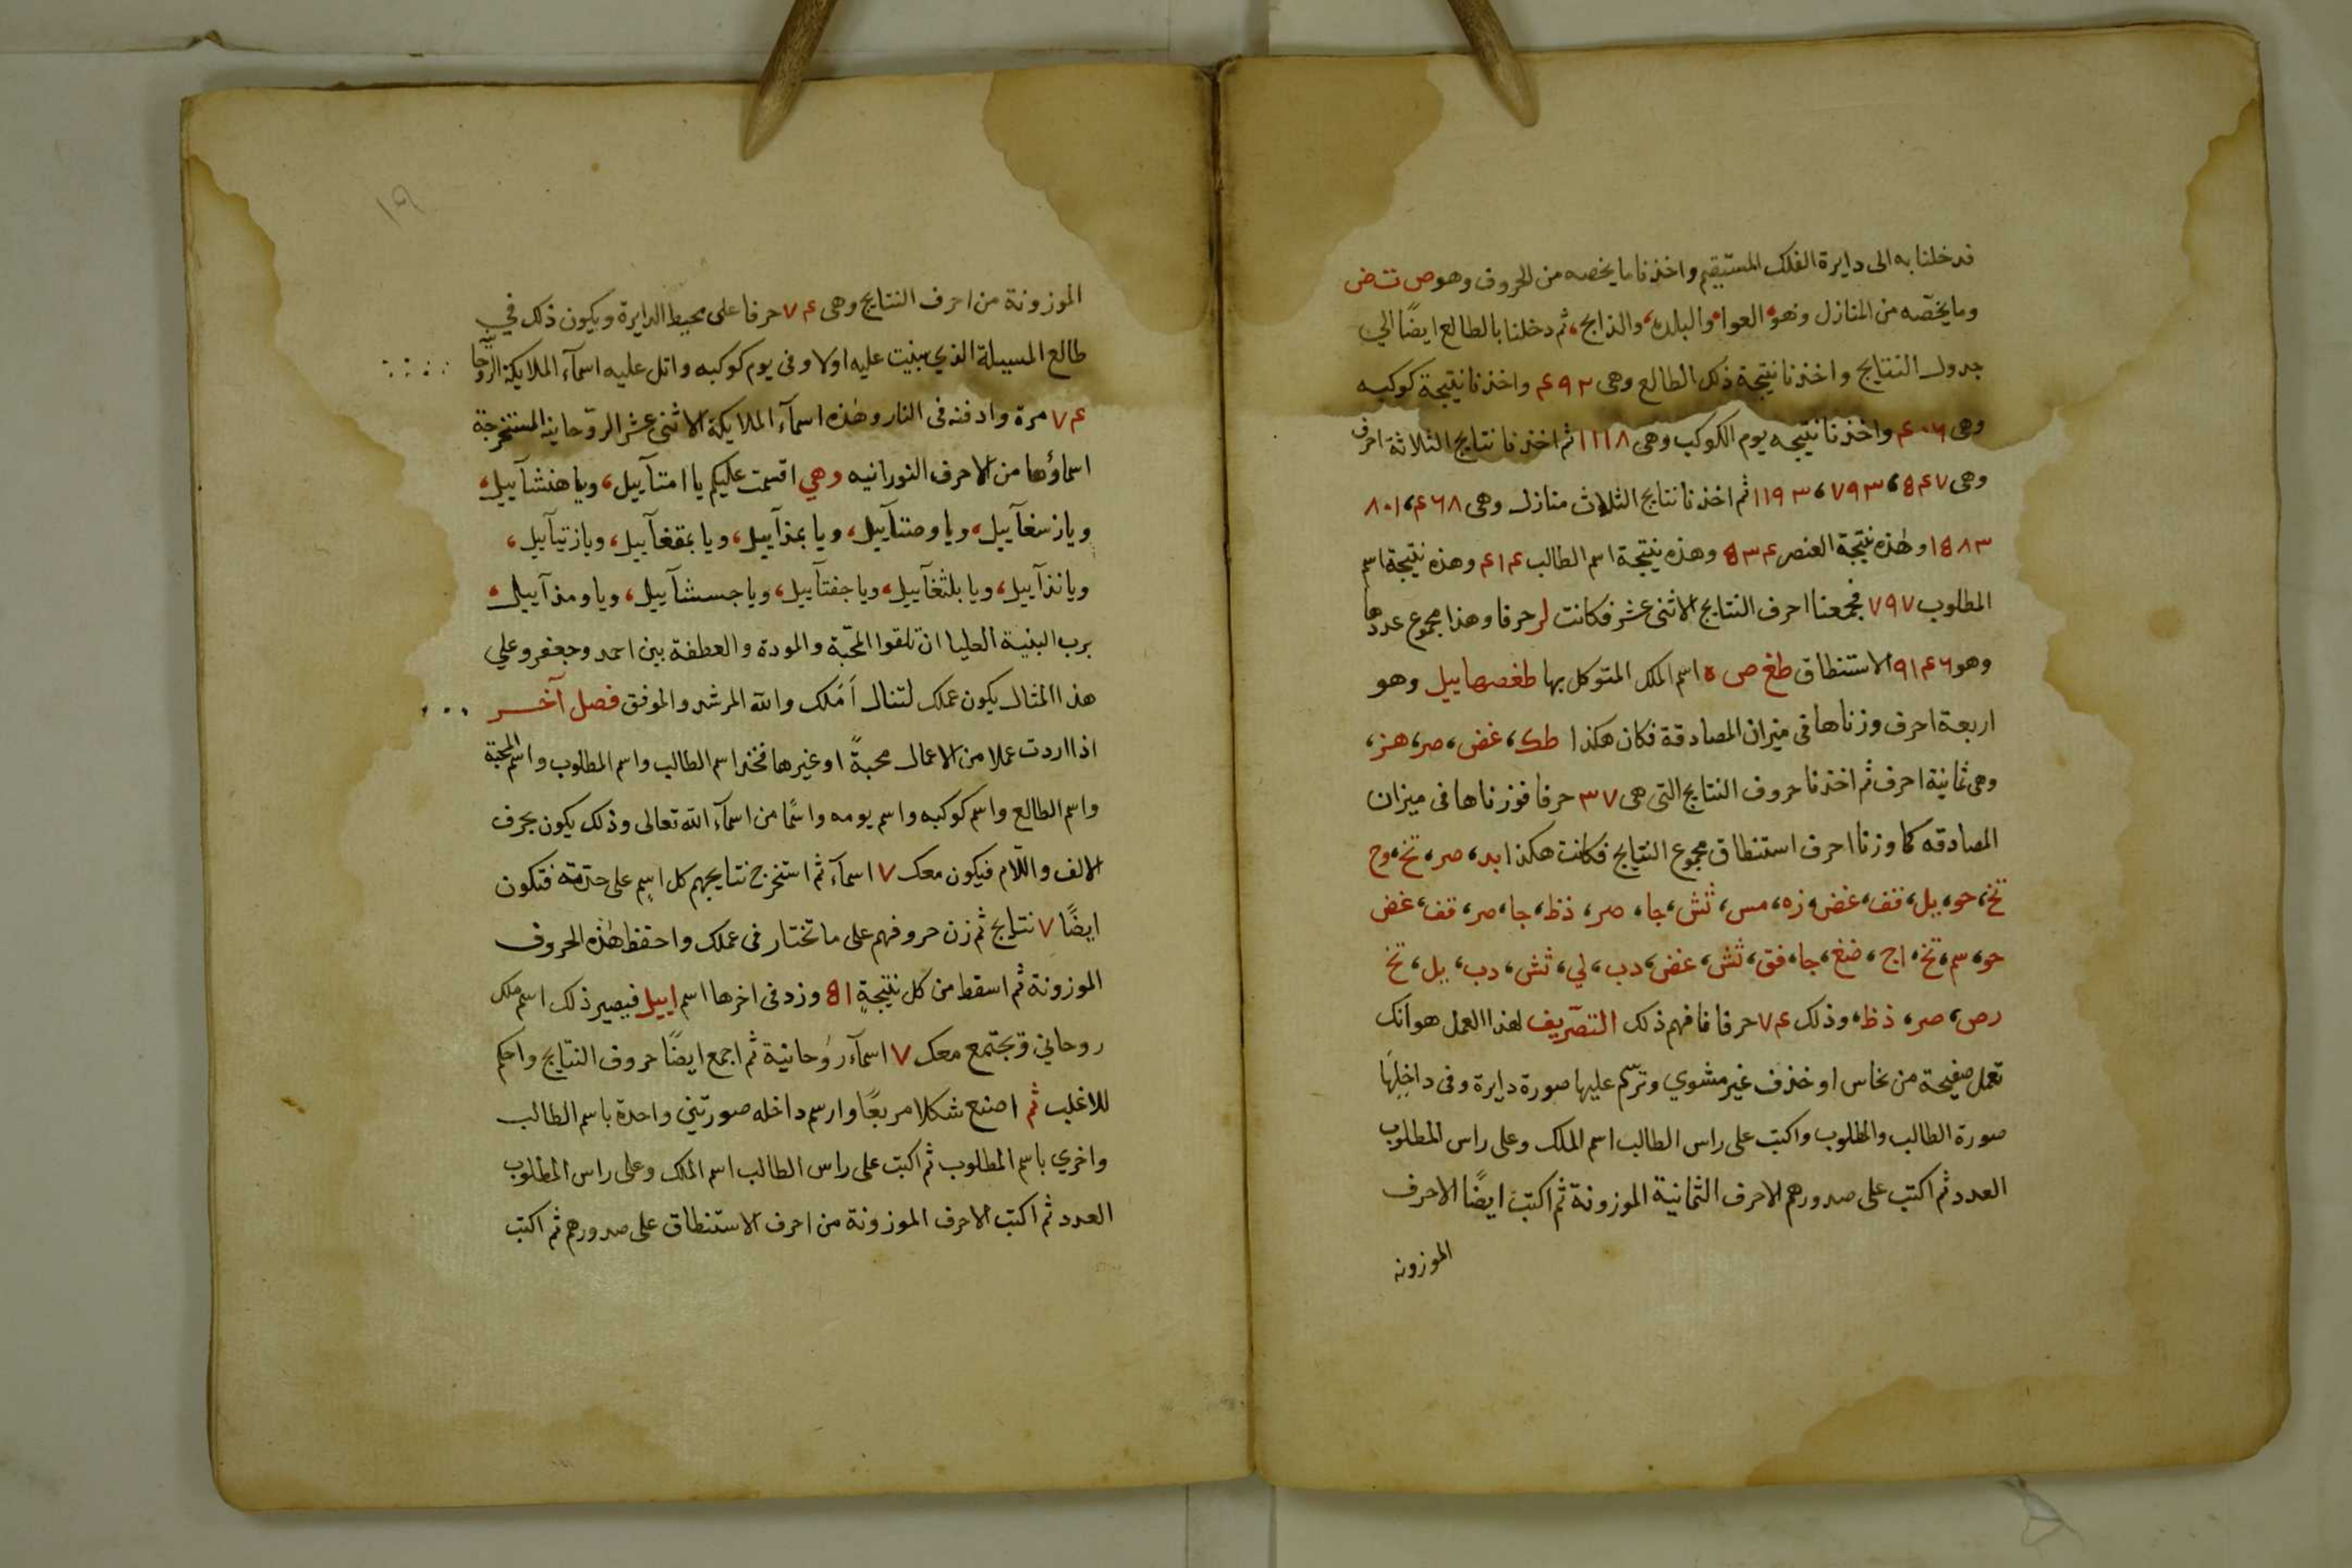 قد خلنا به الى دايرة الفلك المستقيم واخذنا ما يخصه من الحروف وهو ص ت ض
وما يخصّه من المنازل وهو العوا والبلده، والذابح، ثم دخلنا بالطالع ايضًا الي
جدول النتايج واخذنا نتيجة ذلك الطالع وهى ۴۹۳ واخذنا نتيجة كوكبه
وهى ۴۰۶ واخذنا نتيجه يوم الكوكب وهى ۱۱۱۸ ثم اخذنا نتايج الثلاثة احرف
وهى ۵۴۷، ۷۹۳، ۱۱۹۳ ثم اخذنا نتايج الثلاث منازل وهى ۴۶۸، ۸۰۱
۱۵۸۳ وهٰذه نتيجة العنصر ۵۳۴ وهذه نتيجة اسم الطالب ۴۱۴ وهذه نتيجة اسم
المطلوب ۷۹۷ فجمعنا احرف النتايج الاثنى عشر فكانت لز حرفا وهذا مجموع عددها
وهو ۹۱۴۶ الاستنطاق طغ ص ه اسم الملك المتوكل بها طغصهاييل وهو
اربعة احرف وزناها فى ميزان المصادقة فكان هكذا طك، غض، صر، هز،
وهى ثمانية احرف ثم اخذنا حروف النتايج التى هى ۳۷ حرفا فوزناها فى ميزان
المصادقه كما وزنا احرف استنطاق مجموع النتايج فكانت هكذا بد، صر، تخ، وح
تخ، حو، يل، قف، غض، زه، مس، ثش، جا، صر، ذظ، جا، صر، قف، غض
حو، سم، تخ، اج، ضغ، جا، فق، ثش، غض، دب، لي، ثش، دب، يل، تخ
رص، صر، ذظ، وذلك ۷۴ حرفا فافهم ذلك التصّريف لهذا العمل هو انك
تعمل صفيحة من نحاس او خذف غير مشوي وترسّم عليها صورة دايرة وفى داخِلِهَا
صورة الطالب والمطلوب واكتب على راس الطالب اسم الملك وعلى راس المطلوب
العدد ثم اكتب على صدورهم الاحرف الثمانية الموزونة ثم اكتب ايضًا الاحرف
الموزونه
۱۹
الموزونة من احرف النتايج وهى ۷۴ حرفا على محيط الدايرة ويكون ذلك في
طالع المسيلة الذي بنيت عليه اولا وفى يوم كوكبه واتل عليه اسمآء الملايكة الروحانيّة
۷۴ مرة وادفنه فى النار وهٰذه اسمآء الملايكة الاثنى عشر الرّوحانيه المستخرجة
اسماؤها من الاحرف النورانيه وهي اقسمت عليكم يا امتآييل، ويا هنشآييل،
ويا زسغآييل، ويا وصتآييل، ويا بمذآييل، ويا بمقغآييل، ويا زتيآييل،
ويا نذآييل، ويا بلثغآييل، ويا جفتآييل، ويا جسشآييل، ويا ومذآييل،
برب البنية العليا ان تلقوا المحّبة والمودة والعطفة بين احمد وجعفر وعلي
هذا المثال يكون عملك لتنال اَمَلك والله المرشد والموفق فصل آخر
اذا اردت عملا من الاعمال محبةً او غيرها فخذ اسم الطالب واسم المطلوب واسم المحبّة
واسم الطالع واسم كوكبه واسم يومه واسمًا من اسمآء الله تعالى وذلك يكون بحرف
الالف واللّام فيكون معك ۷ اسمآء ثم استخرج نتايجهم كل اسمٍ على حدّته فتكون
ايضًا ۷ نتايج ثم زن حروفهم على ما تختار فى عملك واحفظ هٰذه الحروف
الموزونة ثم اسقط من كل نتيجةٍ ۵۱ وزد فى اخرها اسم اييل فيصير ذلك اسم ملك
روحاني وٓيجتمع معك ۷ اسمآء روٗحانية ثم اجمع ايضًا حروف النتايج واحكم
للاغلب ثم اصنع شكلا مربعًا وارسم داخله صورتين واحدة باسم الطالب
واخري باسم المطلوب ثم اكتب على راس الطالب اسم الملك وعلى راس المطلوب
العدد ثم اكتب الاحرف الموزونة من احرف الاستنطاق على صدورهم ثم اكتب